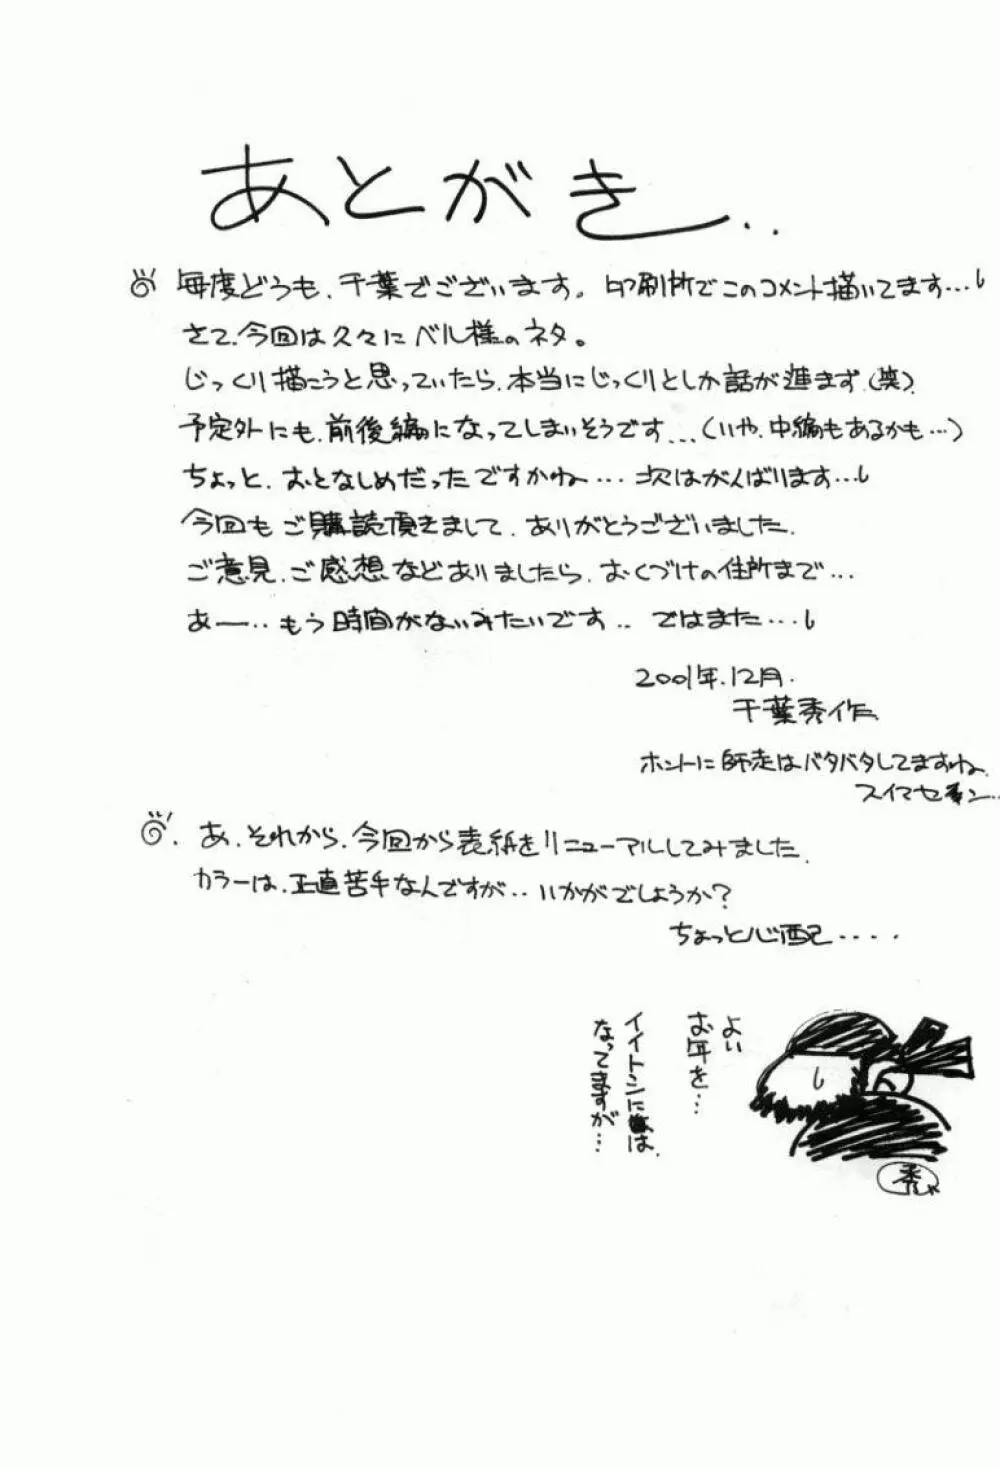 あとがき..
毎度どうも、千葉でございます。印刷所でこのコメント描いてます…
さて、今回は久々にベル様のネタ。
じっくり描こうと思っていたら、本当にじっくりとしか話が進まず、(笑)、
予定外にも、前後編になってしまいそうです…(いや、中編もあるかも…)
ちょっと、おとなしめだったですかね…次はがんばります…
今回もご購読頂きまして、ありがとうございました。
ご意見、ご感想などありましたら、おくづけの住所まで…
あー…もう時間がないみたいです..ではまた…
2001年.12月.
千葉秀作
ホントに師走はバタバタしてますね、
スイマセン…
あ、それから、今回から表紙をリニューアルしてみました。
カラーは、正直苦手なんですが..いかがでしょうか?
ちょっと心配….
よい
お年を…
イイトシには、
なってますが…
秀